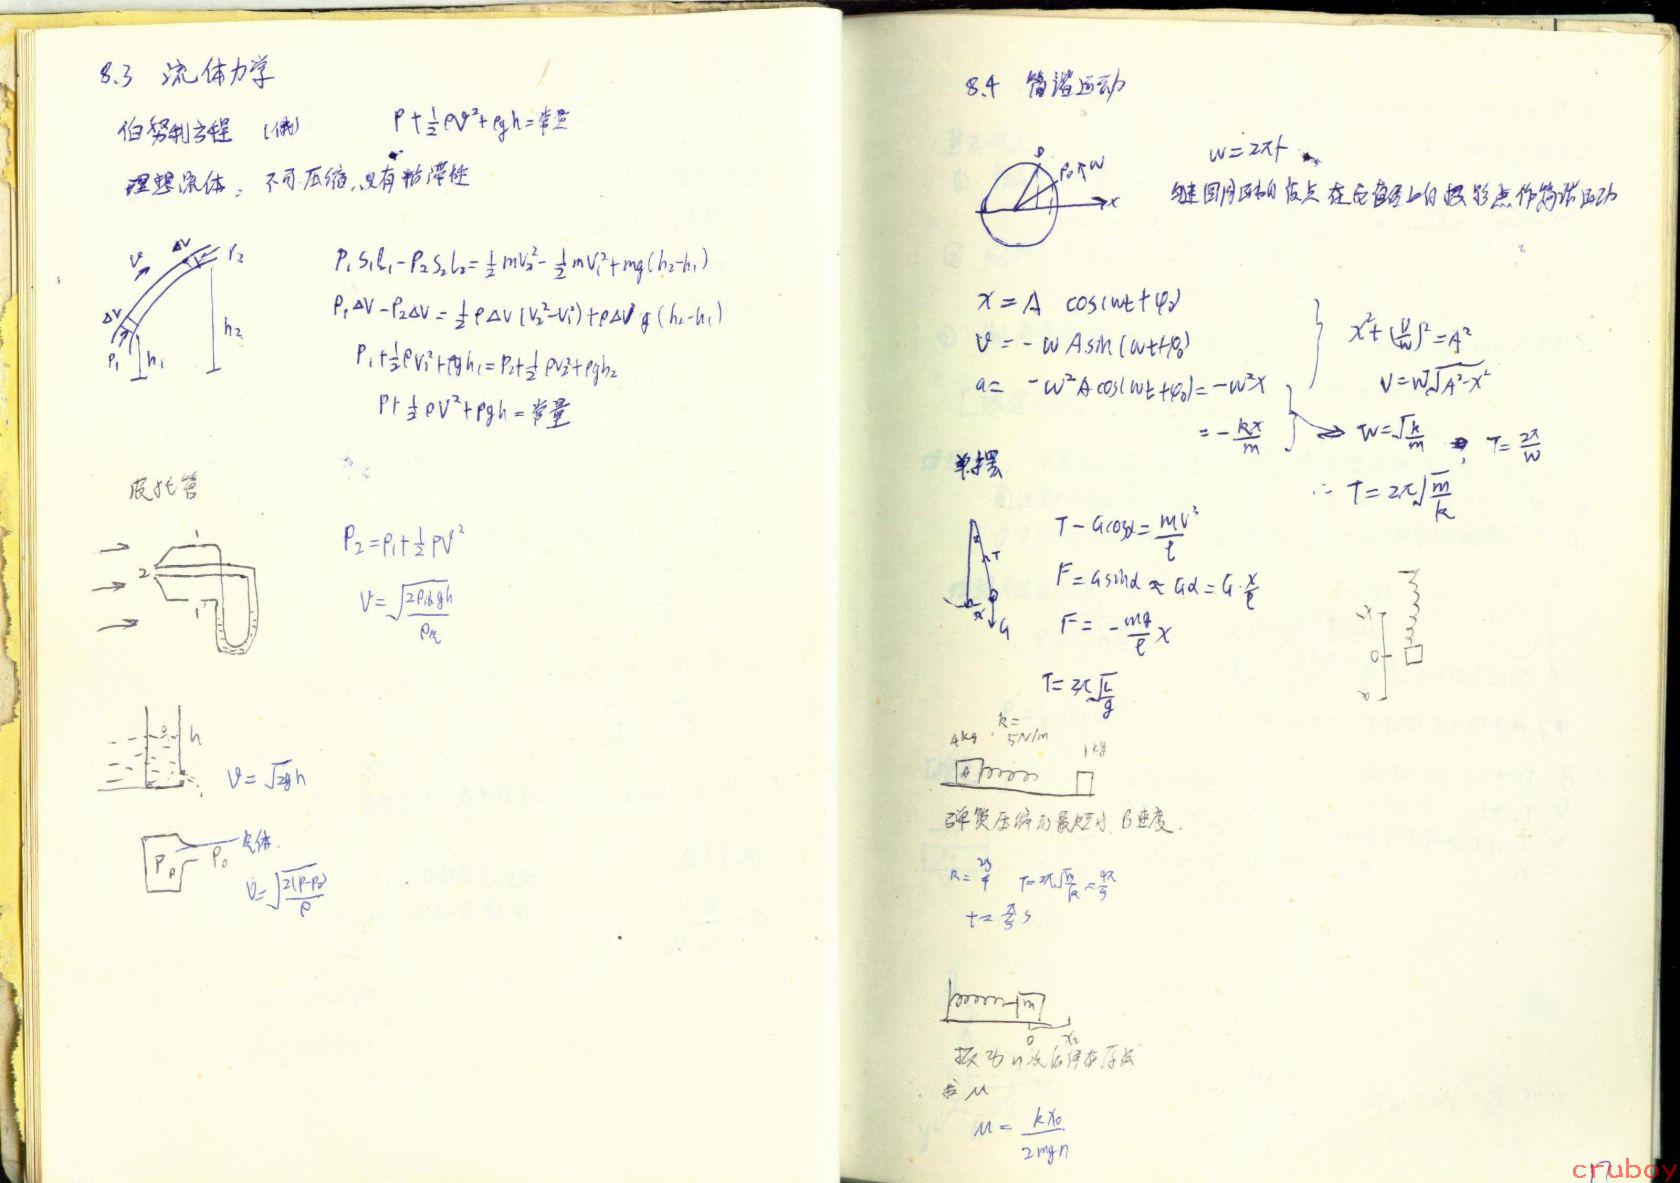 8.3 流体力学
伯努利方程 P+½ρv²+ρgh=常量
理想流体：不可压缩，没有粘滞性
ΔV
v
P₂
ΔV
P₁
h₁
h₂
P₁S₁l₁-P₂S₂l₂=½mv₂²-½mv₁²+mg(h₂-h₁)
P₁ΔV-P₂ΔV=½ρΔV(v₂²-v₁²)+ρΔVg(h₂-h₁)
P₁+½ρv₁²+ρgh₁=P₂+½ρv₂²+ρgh₂
P+½ρv²+ρgh=常量
皮托管
1
2
1'
P₂=P₁+½ρv²
h
v=√2gh
P
ρ
P₀
气体.
v=√(2(P-P₀)/ρ)
8.4 简谐运动
ω=2πf
P
P₀
ω
x
在直径上的投影点作简谐运动
x=A cos(ωt+φ₀)
v=-ωAsin(ωt+φ₀)
a=-ω²Acos(ωt+φ₀)=-ω²x
=-kx/m
x²+(v/ω)²=A²
v=ω√(A²-x²)
ω=√(k/m)
T=2π/ω
∴ T=2π√(m/k)
单摆
T
x
G
T-Gcosα=mv²/l
F=Gsinα≈Gα=G·x/l
F=-mg/l x
T=2π√(L/g)
0
4kg
k=5N/m
1kg
A
弹簧压缩到最短时 B速度.
t=π/5 s
m
0
x₀
振动n次后停在原点
求μ
μ=kx₀/2mgn
cruboy